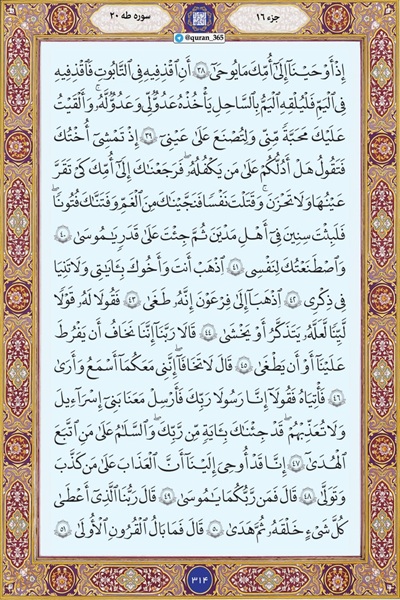 جزء ۱۶
@quran_365
سوره طه ۲۰
إِذْ أَوْحَيْنَآ إِلَىٰٓ أُمِّكَ مَا يُوحَىٰٓ ﴿٣٨﴾ أَنِ ٱقْذِفِيهِ فِى ٱلتَّابُوتِ فَٱقْذِفِيهِ
فِى ٱلْيَمِّ فَلْيُلْقِهِ ٱلْيَمُّ بِٱلسَّاحِلِ يَأْخُذْهُ عَدُوٌّ لِّى وَعَدُوٌّ لَّهُۥ ۚ وَأَلْقَيْتُ
عَلَيْكَ مَحَبَّةً مِّنِّى وَلِتُصْنَعَ عَلَىٰ عَيْنِىٓ ﴿٣٩﴾ إِذْ تَمْشِىٓ أُخْتُكَ
فَتَقُولُ هَلْ أَدُلُّكُمْ عَلَىٰ مَن يَكْفُلُهُۥ ۖ فَرَجَعْنَٰكَ إِلَىٰٓ أُمِّكَ كَىْ تَقَرَّ
عَيْنُهَا وَلَا تَحْزَنَ ۚ وَقَتَلْتَ نَفْسًا فَنَجَّيْنَٰكَ مِنَ ٱلْغَمِّ وَفَتَنَّٰكَ فُتُونًا ۚ
فَلَبِثْتَ سِنِينَ فِىٓ أَهْلِ مَدْيَنَ ثُمَّ جِئْتَ عَلَىٰ قَدَرٍ يَٰمُوسَىٰ ﴿٤٠﴾
وَٱصْطَنَعْتُكَ لِنَفْسِى ﴿٤١﴾ ٱذْهَبْ أَنتَ وَأَخُوكَ بِـَٔايَٰتِى وَلَا تَنِيَا
فِى ذِكْرِى ﴿٤٢﴾ ٱذْهَبَآ إِلَىٰ فِرْعَوْنَ إِنَّهُۥ طَغَىٰ ﴿٤٣﴾ فَقُولَا لَهُۥ قَوْلًا
لَّيِّنًا لَّعَلَّهُۥ يَتَذَكَّرُ أَوْ يَخْشَىٰ ﴿٤٤﴾ قَالَا رَبَّنَآ إِنَّنَا نَخَافُ أَن يَفْرُطَ
عَلَيْنَآ أَوْ أَن يَطْغَىٰ ﴿٤٥﴾ قَالَ لَا تَخَافَآ ۖ إِنَّنِى مَعَكُمَآ أَسْمَعُ وَأَرَىٰ
﴿٤٦﴾ فَأْتِيَاهُ فَقُولَآ إِنَّا رَسُولَا رَبِّكَ فَأَرْسِلْ مَعَنَا بَنِىٓ إِسْرَٰٓءِيلَ
وَلَا تُعَذِّبْهُمْ ۖ قَدْ جِئْنَٰكَ بِـَٔايَةٍ مِّن رَّبِّكَ ۖ وَٱلسَّلَٰمُ عَلَىٰ مَنِ ٱتَّبَعَ
ٱلْهُدَىٰٓ ﴿٤٧﴾ إِنَّا قَدْ أُوحِىَ إِلَيْنَآ أَنَّ ٱلْعَذَابَ عَلَىٰ مَن كَذَّبَ
وَتَوَلَّىٰ ﴿٤٨﴾ قَالَ فَمَن رَّبُّكُمَا يَٰمُوسَىٰ ﴿٤٩﴾ قَالَ رَبُّنَا ٱلَّذِىٓ أَعْطَىٰ
كُلَّ شَىْءٍ خَلْقَهُۥ ثُمَّ هَدَىٰ ﴿٥٠﴾ قَالَ فَمَا بَالُ ٱلْقُرُونِ ٱلْأُولَىٰ ﴿٥١﴾
۳۱۴